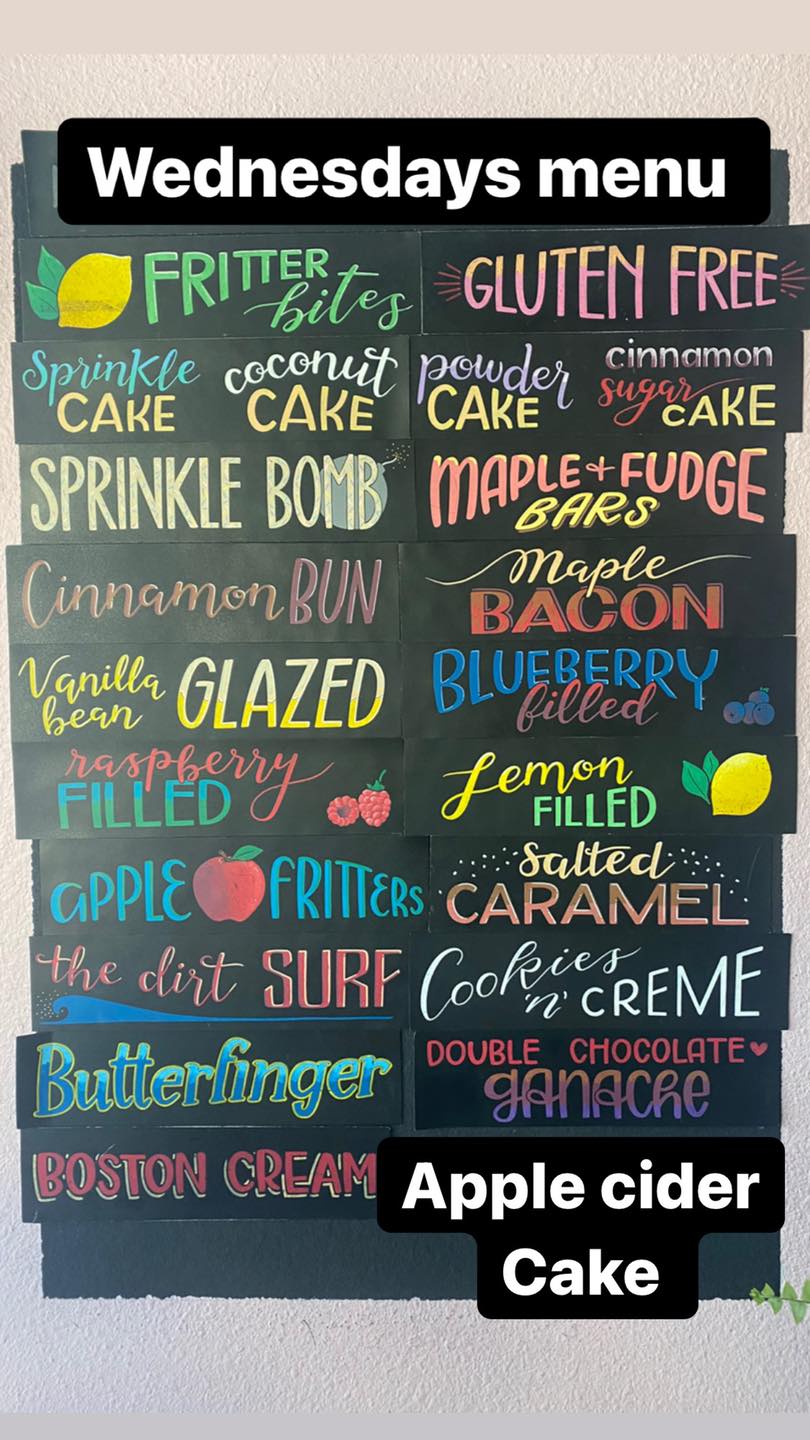 Wednesdays menu
FRITTER bites
GLUTEN FREE
Sprinkle CAKE
coconut CAKE
powder CAKE
cinnamon sugar CAKE
SPRINKLE BOMB
MAPLE + FUDGE BARS
Cinnamon BUN
Maple BACON
Vanilla bean GLAZED
BLUEBERRY filled
raspberry FILLED
Lemon FILLED
APPLE FRITTERS
Salted CARAMEL
the dirt SURF
Cookies 'n' CREME
Butterfinger
DOUBLE CHOCOLATE ganache
BOSTON CREAM
Apple cider
Cake